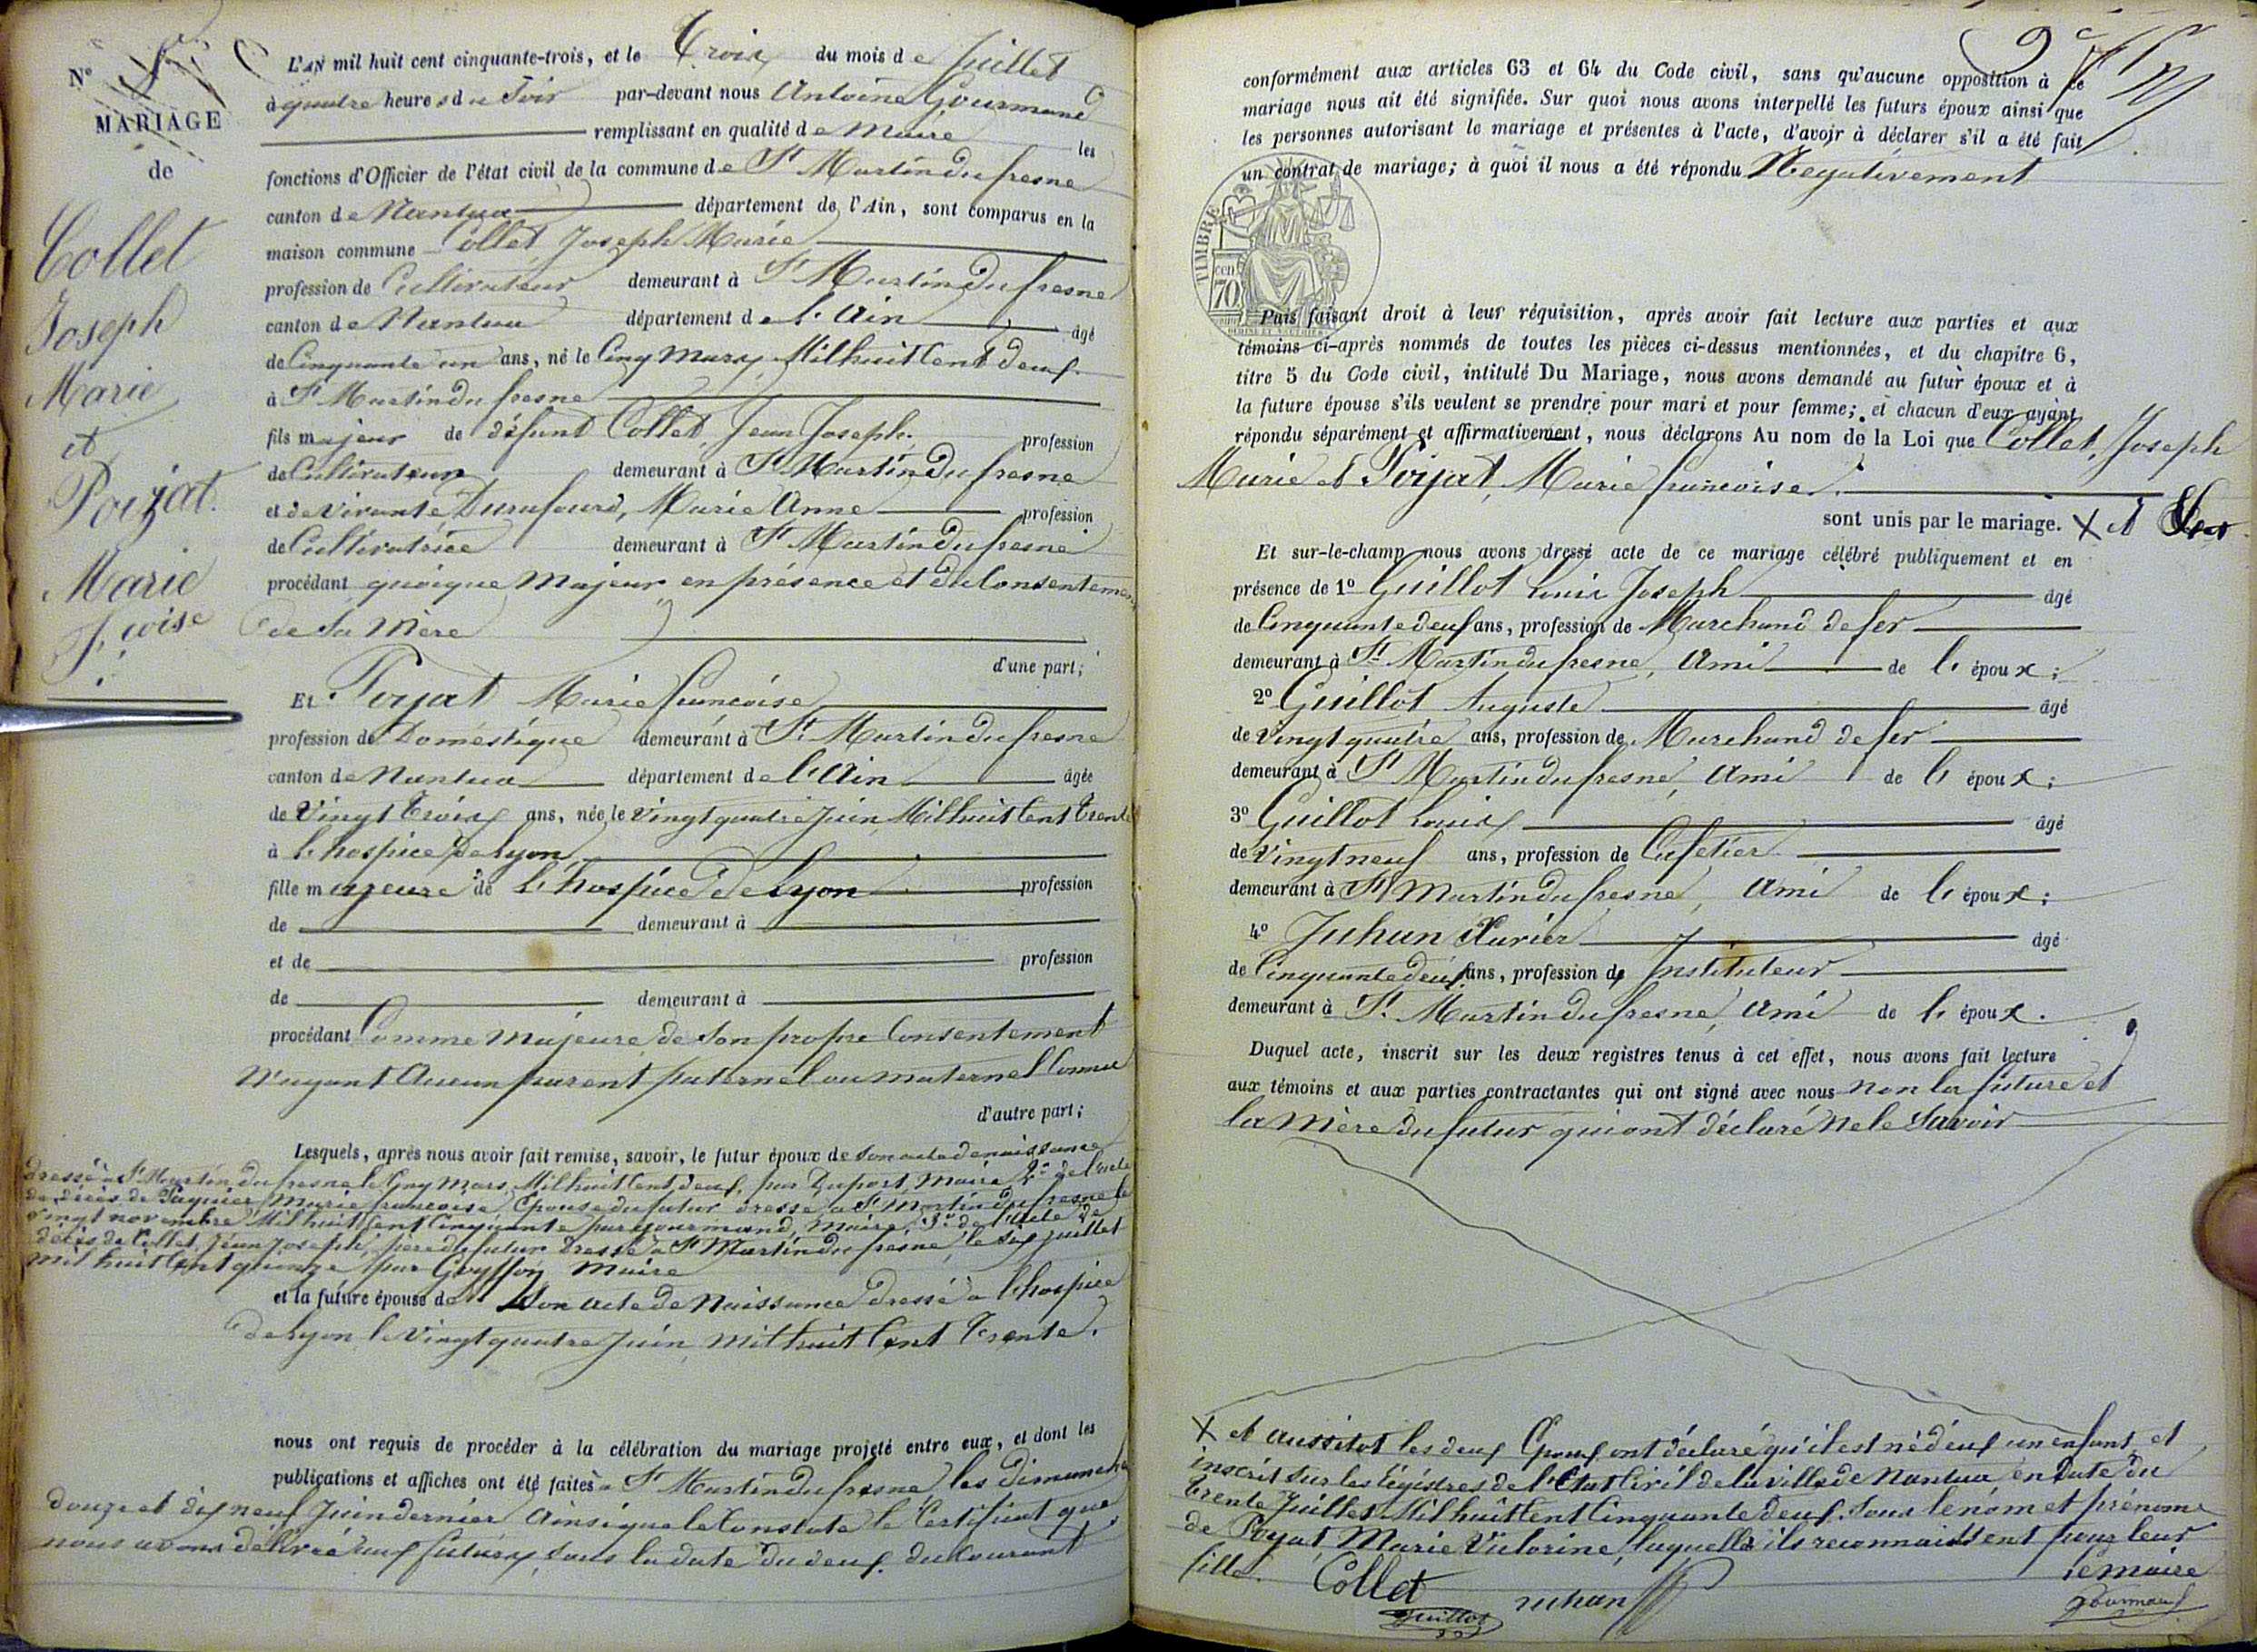 N°
MARIAGE
de
Collet
Joseph
Marie
et
Poizat.
Marie
F.çoise
L'AN mil huit cent cinquante-trois, et le Trois du mois de Juillet
à quatre heures du Soir par-devant nous Antoine Gourmand
remplissant en qualité de Maire les
fonctions d'Officier de l'état civil de la commune de St Martin du fresne
canton de Nantua département de l'Ain, sont comparus en la
maison commune Collet Joseph Marie
profession de Cultivateur demeurant à St Martin du fresne
canton de Nantua département de l'Ain âgé
de Cinquante un ans, né le Cinq Mars Mil huit Cent deux
à St Martin du fresne
fils majeur de défunt Collet, Jean Joseph. profession
de Cultivateur demeurant à St Martin du fresne
et de vivante Durafourd, Marie Anne profession
de Cultivatrice demeurant à St Martin du fresne
procédant quoique Majeur en présence et du Consentement
de Sa Mère
d'une part;
Et Poizat Marie françoise
profession de Doméstique demeurant à St Martin du fresne
canton de Nantua département de l'Ain âgée
de Vingt Trois ans, née le Vingt quatre Juin, Mil huit Cent Trente
à l'hospice de Lyon
fille majeure de l'hospice de Lyon profession
de demeurant à
et de profession
de demeurant à
procédant Comme Majeure de Son propre Consentement
N'ayant Aucun parent paternel ou maternel Connu
d'autre part;
Lesquels, après nous avoir fait remise, savoir, le futur époux de Son acte de naissance
dressé à St Martin du fresne le Cinq Mars Mil huit Cent deux, par Duport, Maire 2° de l'acte
de décès de Paquier Marie françoise, Epouse du futur dressé à St Martin du fresne le
Vingt novembre Mil huit Cent Cinquante par Gourmand, Maire, 3° de l'acte de
décès de Collet Jean Joseph, père du futur dressé à St Martin du fresne, le six juillet
mil huit Cent quinze par Maire
et la future épouse de Son acte de Naissance dressé à l'hospice
de Lyon, le Vingt quatre Juin, Mil huit Cent Trente.
nous ont requis de procéder à la célébration du mariage projeté entre eux, et dont les
publications et affiches ont été faites à St Martin du fresne les dimanche
douze et dix neuf Juin dernier Ainsi que le Constate le Certificat que
nous avons délivré aux futurs, Sous la date du deux du Courant
conformément aux articles 63 et 64 du Code civil, sans qu'aucune opposition à ce
mariage nous ait été signifiée. Sur quoi nous avons interpellé les futurs époux ainsi que
les personnes autorisant le mariage et présentes à l'acte, d'avoir à déclarer s'il a été fait
un contrat de mariage; à quoi il nous a été répondu Négativement
TIMBRE
cen
70
Puis faisant droit à leur réquisition, après avoir fait lecture aux parties et aux
témoins ci-après nommés de toutes les pièces ci-dessus mentionnées, et du chapitre 6,
titre 5 du Code civil, intitulé Du Mariage, nous avons demandé au futur époux et à
la future épouse s'ils veulent se prendre pour mari et pour femme; et chacun d'eux ayant
répondu séparément et affirmativement, nous déclarons Au nom de la Loi que Collet, Joseph
Marie et Poizat, Marie françoise.
sont unis par le mariage. X et
Et sur-le-champ nous avons dressé acte de ce mariage célébré publiquement et en
présence de 1° Guillot Louis Joseph âgé
de Cinquante deux ans, profession de Marchand de fer
demeurant à St Martin du fresne, Ami de l' époux;
2° Guillot Auguste âgé
de vingt quatre ans, profession de Marchand de fer
demeurant à St Martin du fresne, Ami de l' époux;
3° Guillot Louis âgé
de Vingt neuf ans, profession de Cafetier
demeurant à St Martin du fresne, Ami de l' époux;
4° Juhan Xavier âgé
de Cinquante deux ans, profession de Instituteur
demeurant à St Martin du fresne, Ami de l' époux.
Duquel acte, inscrit sur les deux registres tenus à cet effet, nous avons fait lecture
aux témoins et aux parties contractantes qui ont signé avec nous non la future et
la Mère du futur qui ont déclaré Ne le Savoir
X et aussitot les deux Epoux ont déclaré qu'il est né d'eux un enfant, et
inscrit Sur les Régistres de l'Etat Civil de la ville de Nantua, en Date du
trente Juillet Mil huit Cent Cinquante deux. Sous le nom et prénoms
de Poizat, Marie Victorine, laquelle ils reconnaissent pour leur
fille.
le maire
Collet Juhan
Guillot Gourmand